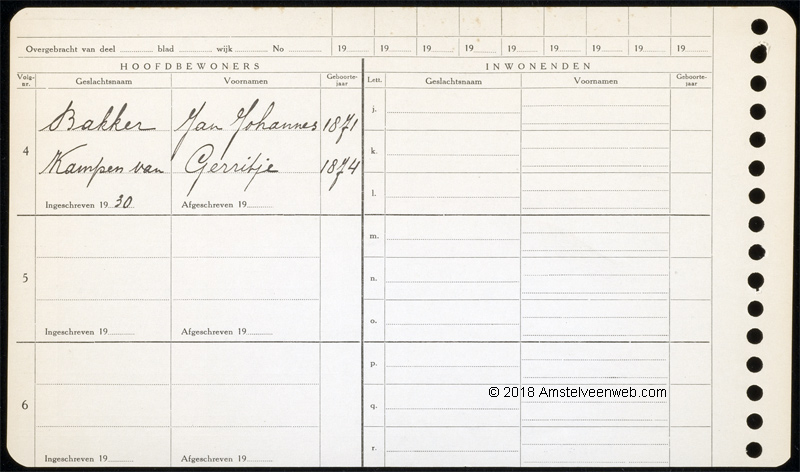 Overgebracht van deel blad wijk No 19 19 19 19 19 19 19 19 19
HOOFDBEWONERS INWONENDEN
Volg-nr. Geslachtsnaam Voornamen Geboorte-jaar Lett. Geslachtsnaam Voornamen Geboorte-jaar
j.
Bakker Jan Johannes 1871
k.
4
Kampen van Gerritje 1874
l.
Ingeschreven 19 30 Afgeschreven 19
m.
5 n.
o.
Ingeschreven 19 Afgeschreven 19
p.
© 2018 Amstelveenweb.com
6 q.
r.
Ingeschreven 19 Afgeschreven 19